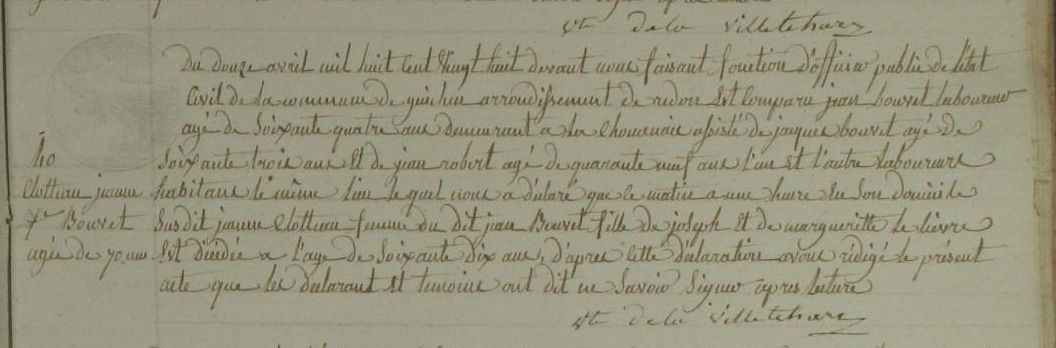 Vte de la Villetehart
Du douze avril mil huit cent vingt huit devant nous faisant fonction d'officier public de l'état
Civil de la commune de guichen arrondissement de redon Est Comparu jean bouvet laboureur
agé de Soixante quatre ans demeurant a la Chouanais assisté de jacques bouvet agé de
40
Soixante trois ans Et de jean robert agé de quarante neuf ans l'un et l'autre Laboureurs
Clotteau jeanne
habitans le même lieu le quel nous a déclaré que ce matin a une heure En Son domicile
fe Bouvet
Susdit jeanne Clotteau femme du dit jean Bouvet fille de joseph Et de margueritte le lièvre
agée de 70 ans
Est décédée a l'age de Soixante Dix ans, d'après Cette declaration avons rédigé le présent
acte que les declarant Et temoins ont dit ne Savoir Signer après lecture
Vte de la Villetehart